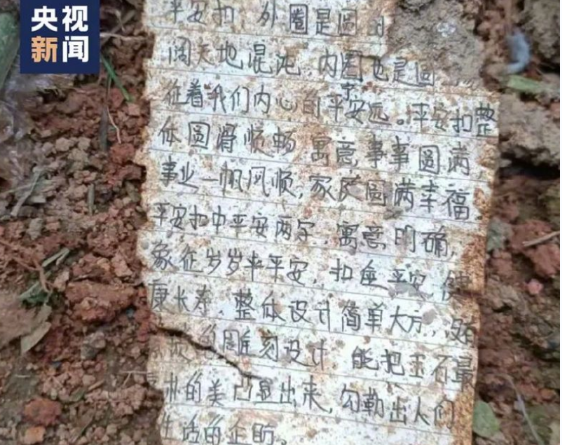 央视
新闻
平安扣，外圈是圆
阔天地混沌，内圈也是圆
征着我们内心的平安远。平安扣整
体圆滑顺畅，寓意事事圆满
事业一帆风顺，家庭圆满幸福
平安扣中平安两字，寓意明确，
象征岁岁平平安，扣住平安，健
康长寿，整体设计简单大方，
雕刻设计，能把玉石最
的美凸显出来，勾勒出人们
生活的正